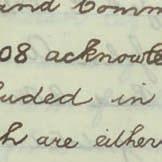 and Comm
08 acknowle
luded in
h are either